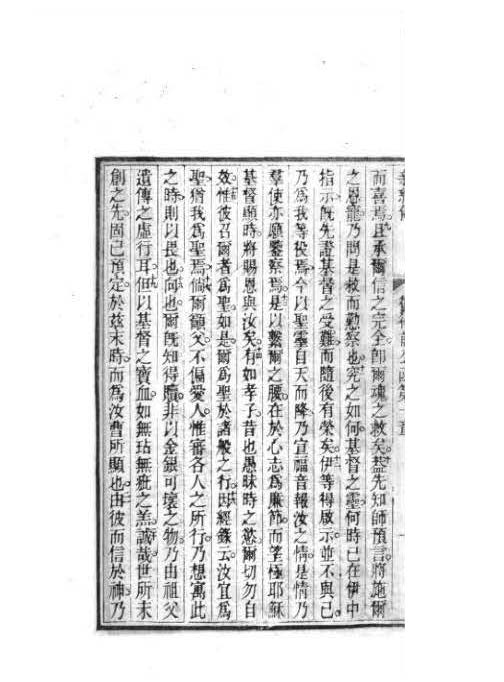 而喜焉且承爾信之完全卽爾魂之救矣蓋先知師預言將施爾
之恩寵乃問是救而勤察也究之如何基督之靈何時已在伊中
指示旣先證基督之受難而隨後有榮矣伊等得啟示並不與己
乃爲我等役焉今以聖靈自天而降乃宣福音報汝之情是情乃
羣使亦願鑒察焉是以繫爾之腰在於心志爲廉節而望極耶穌
基督顯時將賜恩與汝矣有如孝子昔也愚昧時之慾爾切勿自
效惟彼召爾者爲聖如是爾爲聖於諸般之行因經錄云汝宜爲
聖猶我爲聖焉倘爾籲父不偏愛人惟審各人之所行乃想寓此
之時則以畏也向也爾旣知得贖非以金銀可壞之物乃由祖父
遺傳之虛行耳但以基督之寶血如無玷無疵之羔誠哉世所未
創之先固已預定於茲末時而爲汝曹所顯也由彼而信於神乃